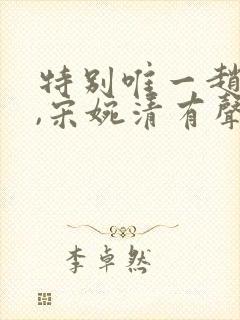 特别唯一趙
,宋婉清有聲
李卓然